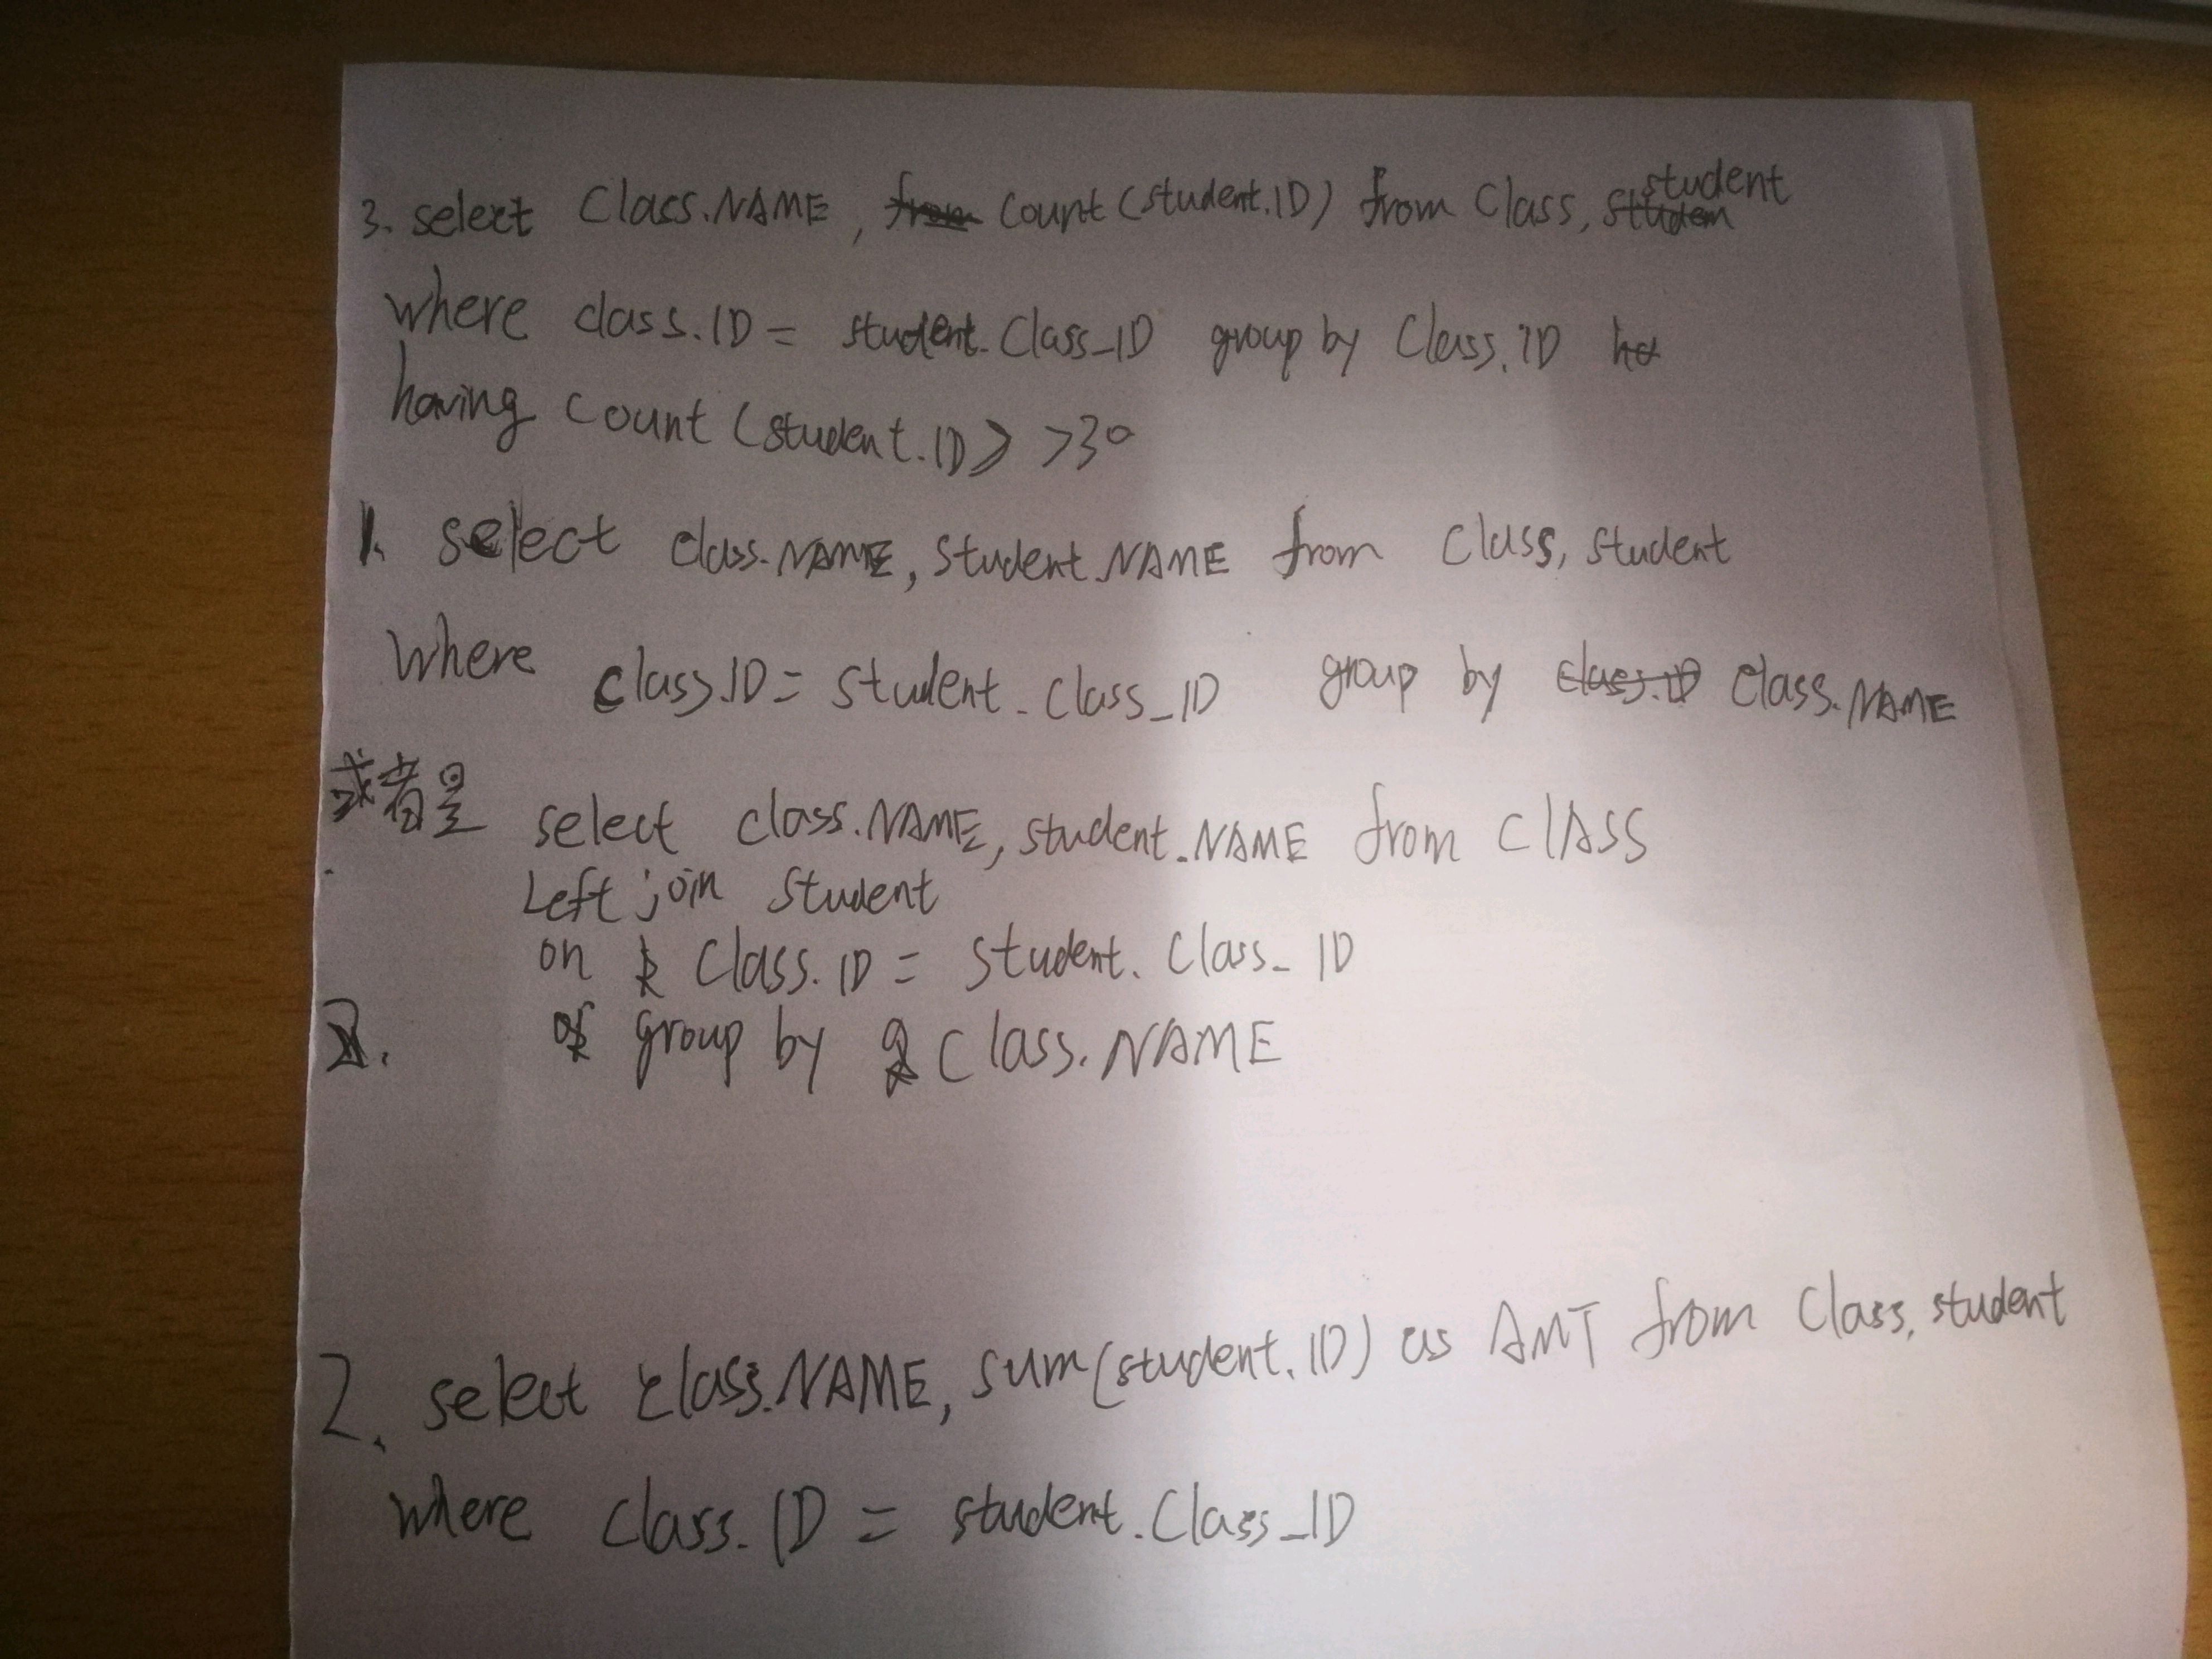 3. select Class.NAME, from count(student.ID) from Class, studen student
where class.ID = student.Class_ID group by Class.ID ha
having count(student.ID) >30
1. select class.NAME, student.NAME from class, student
where class.ID = student.class_ID group by class.ID class.NAME
或者是 select class.NAME, student.NAME from ClASS
Left join student
on Class.ID = student.Class_ID
2. group by Class.NAME
2. select class.NAME, sum(student.ID) as AMT from Class, student
where class.ID = student.Class_ID